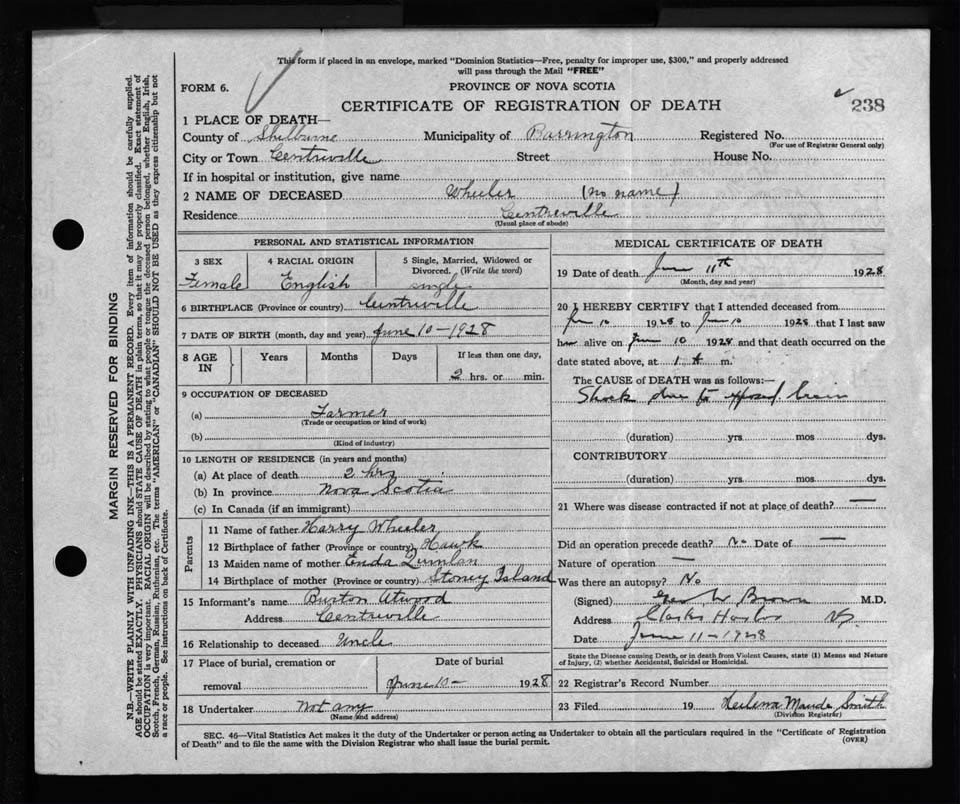 This form if placed in an envelope, marked "Dominion Statistics—Free, penalty for improper use, $300," and properly addressed
will pass through the Mail "FREE"
FORM 6.
PROVINCE OF NOVA SCOTIA
CERTIFICATE OF REGISTRATION OF DEATH
238
1 PLACE OF DEATH—
County of Shelburne Municipality of Barrington Registered No.
(For use of Registrar General only)
City or Town Centreville Street House No.
If in hospital or institution, give name
2 NAME OF DECEASED Wheeler (no name)
Residence Centreville
(Usual place of abode)
PERSONAL AND STATISTICAL INFORMATION
3 SEX 4 RACIAL ORIGIN 5 Single, Married, Widowed or
Divorced. (Write the word)
Female English single
6 BIRTHPLACE (Province or country) Centreville
7 DATE OF BIRTH (month, day and year) June 10-1928
8 AGE IN Years Months Days If less than one day,
2 hrs. or min.
9 OCCUPATION OF DECEASED
(a) Farmer
(Trade or occupation or kind of work)
(b)
(Kind of industry)
10 LENGTH OF RESIDENCE (in years and months)
(a) At place of death 2 hrs
(b) In province Nova Scotia
(c) In Canada (if an immigrant)
Parents
11 Name of father Harry Wheeler
12 Birthplace of father (Province or country) Hawk
13 Maiden name of mother Enda Quinlan
14 Birthplace of mother (Province or country) Stoney Island
15 Informant's name Burton Atwood
Address Centreville
16 Relationship to deceased Uncle
17 Place of burial, cremation or Date of burial
removal June 10- 1928
18 Undertaker Not any
(Name and address)
MEDICAL CERTIFICATE OF DEATH
19 Date of death June 11th 1928
(Month, day and year)
20 I HEREBY CERTIFY that I attended deceased from
June 10 1928 to June 10 1928 that I last saw
her alive on June 10 1928 and that death occurred on the
date stated above, at 1 A m.
The CAUSE of DEATH was as follows:—
Shock due to exposed brain
(duration) yrs mos dys.
CONTRIBUTORY
(duration) yrs. mos dys.
21 Where was disease contracted if not at place of death? —
Did an operation precede death? No Date of —
Nature of operation —
Was there an autopsy? No
(Signed) Geo W Brown M.D.
Address Clarks Harbor NS
Date June 11-1928
State the Disease causing Death, or in death from Violent Causes, state (1) Means and Nature
of Injury, (2) whether Accidental, Suicidal or Homicidal.
22 Registrar's Record Number
23 Filed 19 Maude Smith
(Division Registrar)
SEC. 46—Vital Statistics Act makes it the duty of the Undertaker or person acting as Undertaker to obtain all the particulars required in the "Certificate of Registration
of Death" and to file the same with the Division Registrar who shall issue the burial permit.
(OVER)
MARGIN RESERVED FOR BINDING
N.B.—WRITE PLAINLY WITH UNFADING INK—THIS IS A PERMANENT RECORD. Every item of information should be carefully supplied.
AGE should be stated EXACTLY. PHYSICIANS should STATE CAUSE OF DEATH in plain terms, so that it may be properly classified. Exact statement of
OCCUPATION is very important. RACIAL ORIGIN will be described by stating to what people or tongue the deceased person belonged, whether English, Irish,
Scotch, French, German, Russian, Ruthenian, etc. The terms "AMERICAN" or "CANADIAN" SHOULD NOT BE USED as they express citizenship but not
a race or people. See instructions on back of Certificate.